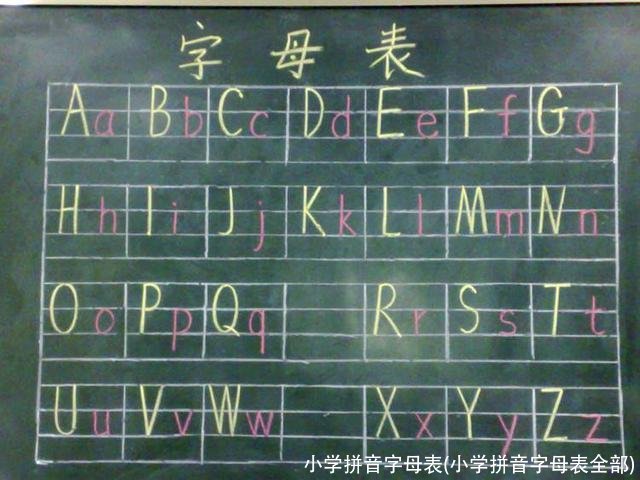 字母表
Aa Bb Cc Dd Ee Ff Gg
Hh Ii Jj Kk Ll Mm Nn
Oo Pp Qq Rr Ss Tt
Uu Vv Ww Xx Yy Zz
小学拼音字母表(小学拼音字母表全部)